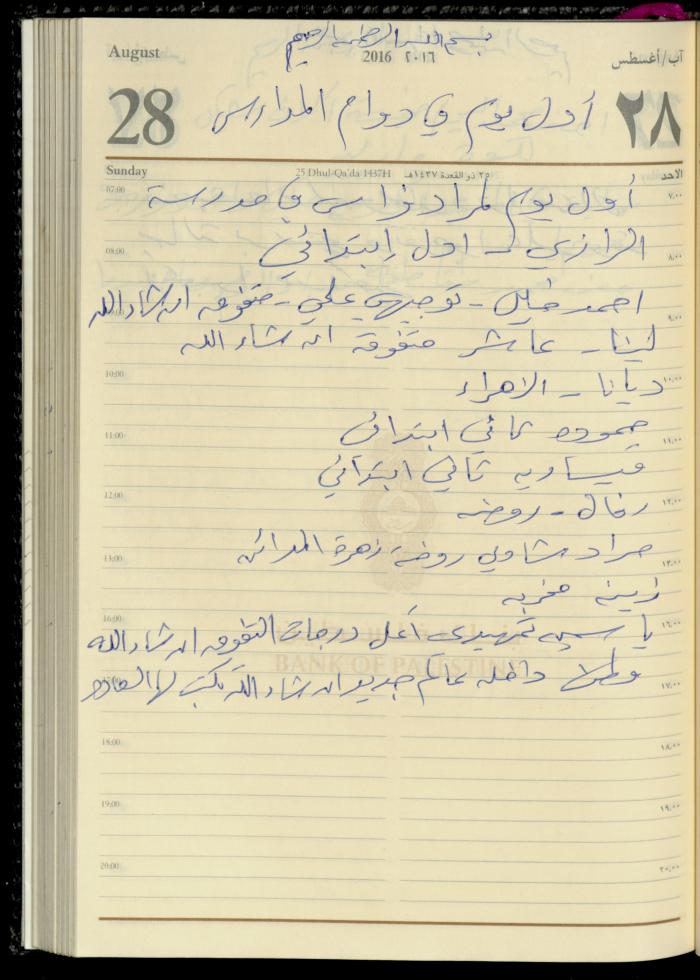 بسم الله الرحمن الرحيم
August 2016 ٢٠١٦ آب/أغسطس
28 أول يوم في دوام المدارس ٢٨
Sunday 25 Dhul-Qa'da 1437H ٢٥ ذو القعدة ١٤٣٧هـ الاحد
07:00 أول يوم لمراد نواس في مدرسة ٧:٠٠
الرازي - اول إبتدائي
08:00 ٨:٠٠
احمد خليل - توجيهي علمي - متفوق ان شاء الله
09:00 ٩:٠٠
لينا - عاشر متفوقة ان شاء الله
10:00 ديانا - الاهراء ١٠:٠٠
حموده ثاني ابتدائي
11:00 ١١:٠٠
ميساريه ثاني ابتدائي
12:00 رفال - روضه ١٢:٠٠
مراد شاولي روضة زهرة المدائن
13:00 ١٣:٠٠
زينه
16:00 ياسمين تمهيدي أعلى درجات التفوق ان شاء الله ١٦:٠٠
BANK OF PALESTINE
17:00 داخله عالم جديد ان شاء الله يكتب لها السعاده ١٧:٠٠
18:00 ١٨:٠٠
19:00 ١٩:٠٠
20:00 ٢٠:٠٠